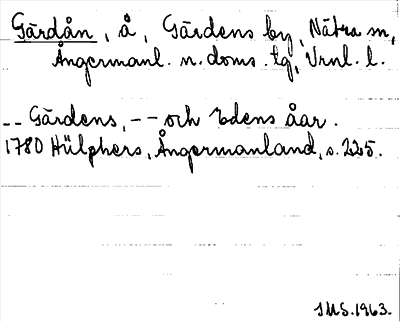 Gärdån, å, Gärdens by, Nätra sn,
Ångermanl. n. doms. tg, Vrnl. l.
-- Gärdens, -- och Edens åar.
1780 Hülphers, Ångermanland, s. 225.
IMS. 1963.